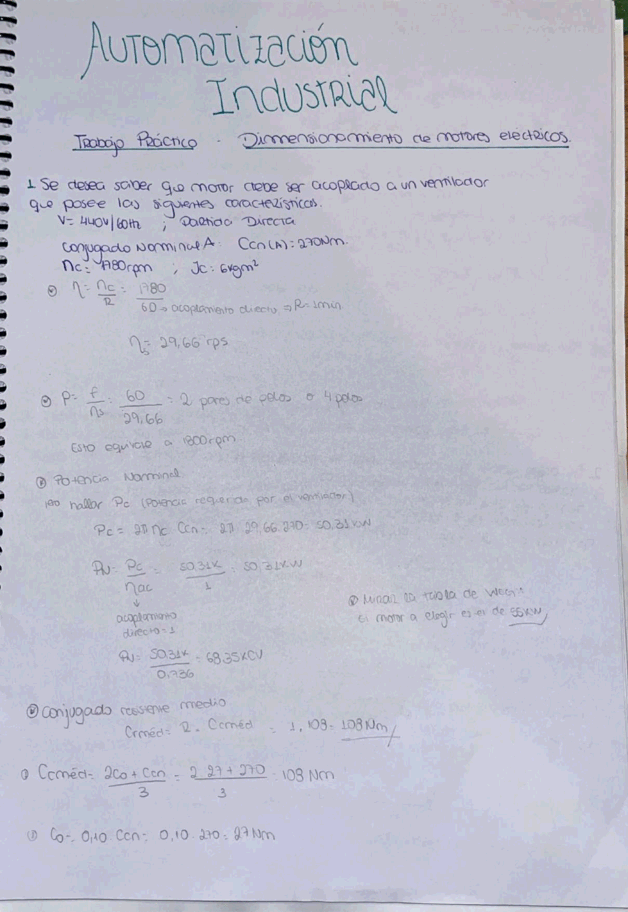 Automatización
Industrial
Trabajo Práctico - Dimmensionamiento de motores eléctricos.
1 Se desea saber que motor debe ser acoplado a un ventilador
que posee las siguientes características.
V= 440V/60Hz ; Partida Directa
Conjugado Norminal A: Ccn(A): 270Nm.
nc= 1780rpm ; Jc: 6kgm²
η = nc/R = 1780/60 → acoplamiento directo → R=1min
ηs= 29,66 rps
P= f/ηs = 60/29,66 = 2 pares de polos o 4 polos
Esto equivale a 1800rpm
Potencia Norminal
hallar Pc (Potencia requerida por el ventilador)
Pc = 2π nc Ccn = 2π 29,66.270= 50.31kW
PN= Pc/ηac = 50.31k/1 = 50.31kW
acoplamiento
directo=1
Mirar la tabla de Weg:
El motor a elegir es el de 55kW
PN= 50.31k/0,736 = 68.35KCV
Conjugado resistente medio
Crméd= R. Ccméd = 1.108= 108Nm
Ccméd= 2Co+Ccn/3 = 2 27+270/3 = 108 Nm
Co= 0,10 Ccn= 0,10. 270= 27Nm